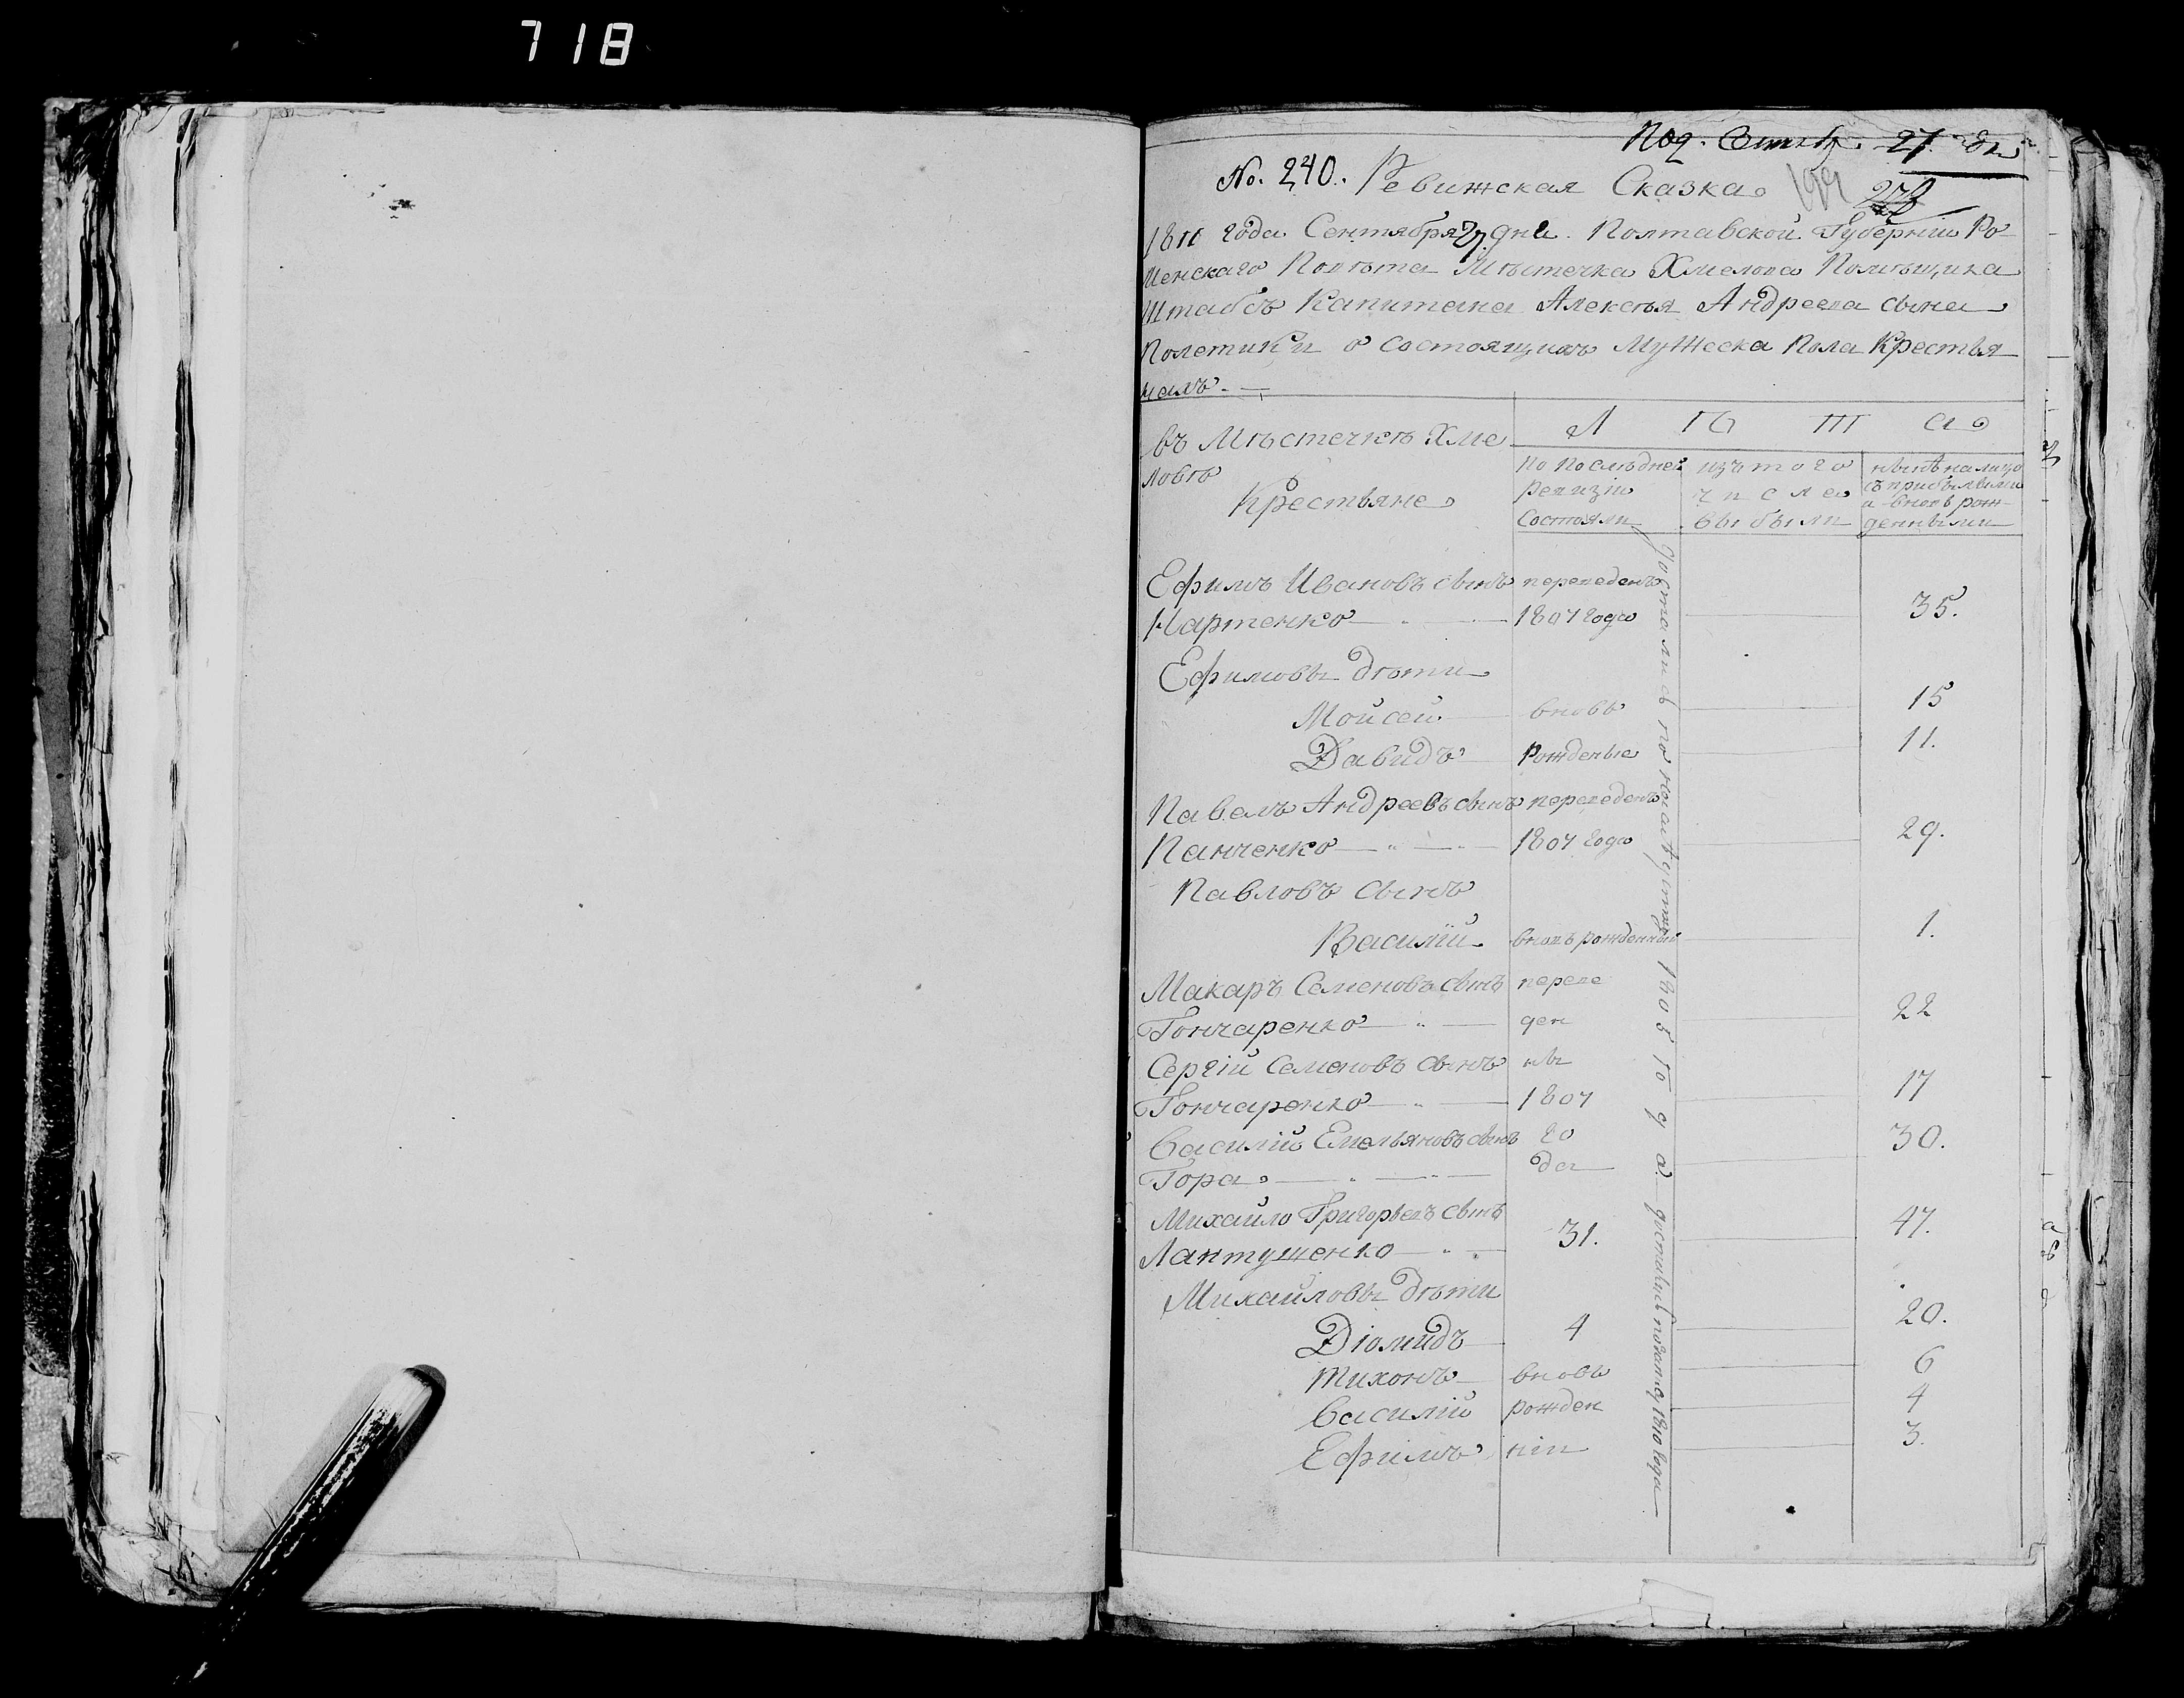 718
Под. Сентяб. 27 дня
No. 240. Ревижская Сказка
199 273
1811 года Сентября 27 дня. Полтавской Губернии Ро-
менскаго Повѣта Мѣстечка Хмелова Помѣщика
Штабсъ Капитана Алексѣя Андреева сына
Полетики о состоящихъ Мужеска Пола Крестья
нахъ. —
въ Мѣстечкѣ Хме
ловѣ
Крестьяне
Л ѣ т а
по последней ревизіи состояли
изъ того числа выбыли
нынѣ на лицо съ прибылыми и вновь рожденными
Ефимъ Ивановъ сынъ переведенъ
Картенко 1807 года 35.
Ефимовы дѣти
Мойсей вновь 15
Давидъ Рожденые 11.
Павелъ Андреевъ сынъ переведенъ
Панченко 1807 года 29.
Павловъ сынъ
Василій вновь рожденный 1.
Макаръ Семеновъ сынъ переве
Гончаренко ден 22
Сергій Семеновъ сынъ ны
Гончаренко 1807 17
Василій Емельяновъ сынъ го 30.
Гора да
Михайло Григорьевъ сынъ
Лаптушенко 31. 47.
Михайловы дѣти
Діомидъ 4 20.
Тихонъ вновь 6
Василій рожден 4
Ефимъ ніи 3.
1805 года
1810 года